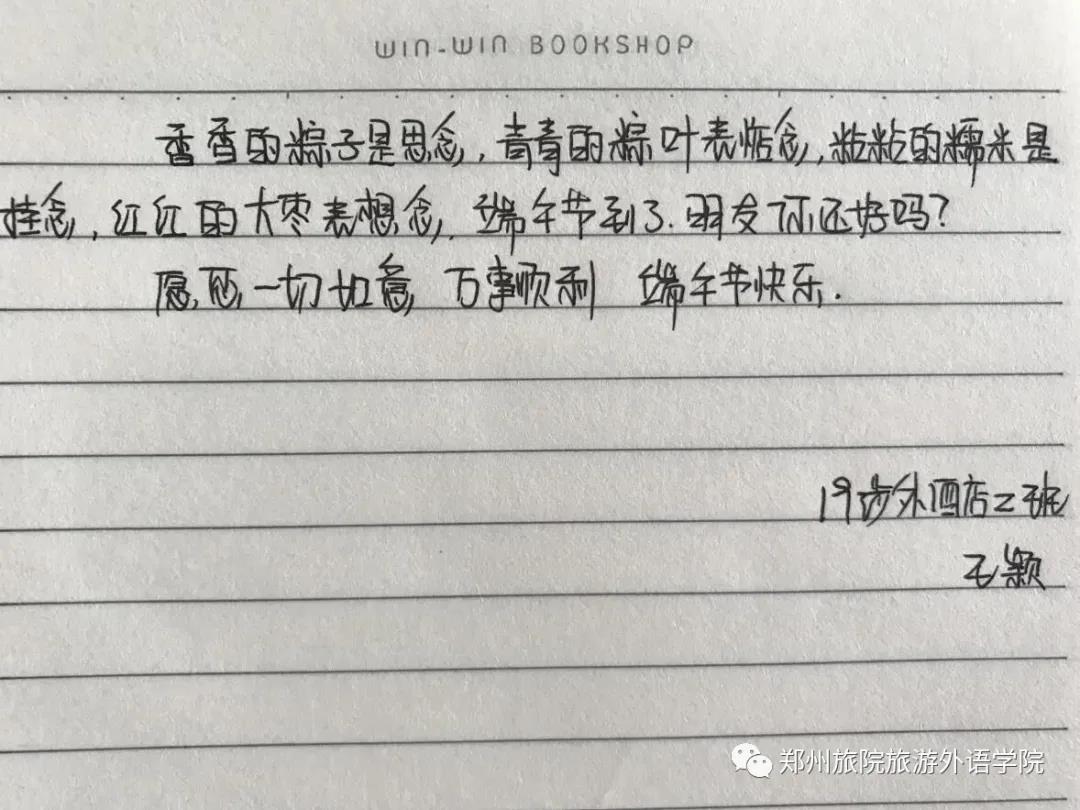 WIN-WIN BOOKSHOP
香香的粽子是思念,青青的粽叶表惦念,粘粘的糯米是
挂念,红红的大枣表想念,端午节到了.朋友你还好吗?
愿您一切如意 万事顺利 端午节快乐.
19涉外酒店二班
王颖
郑州旅院旅游外语学院